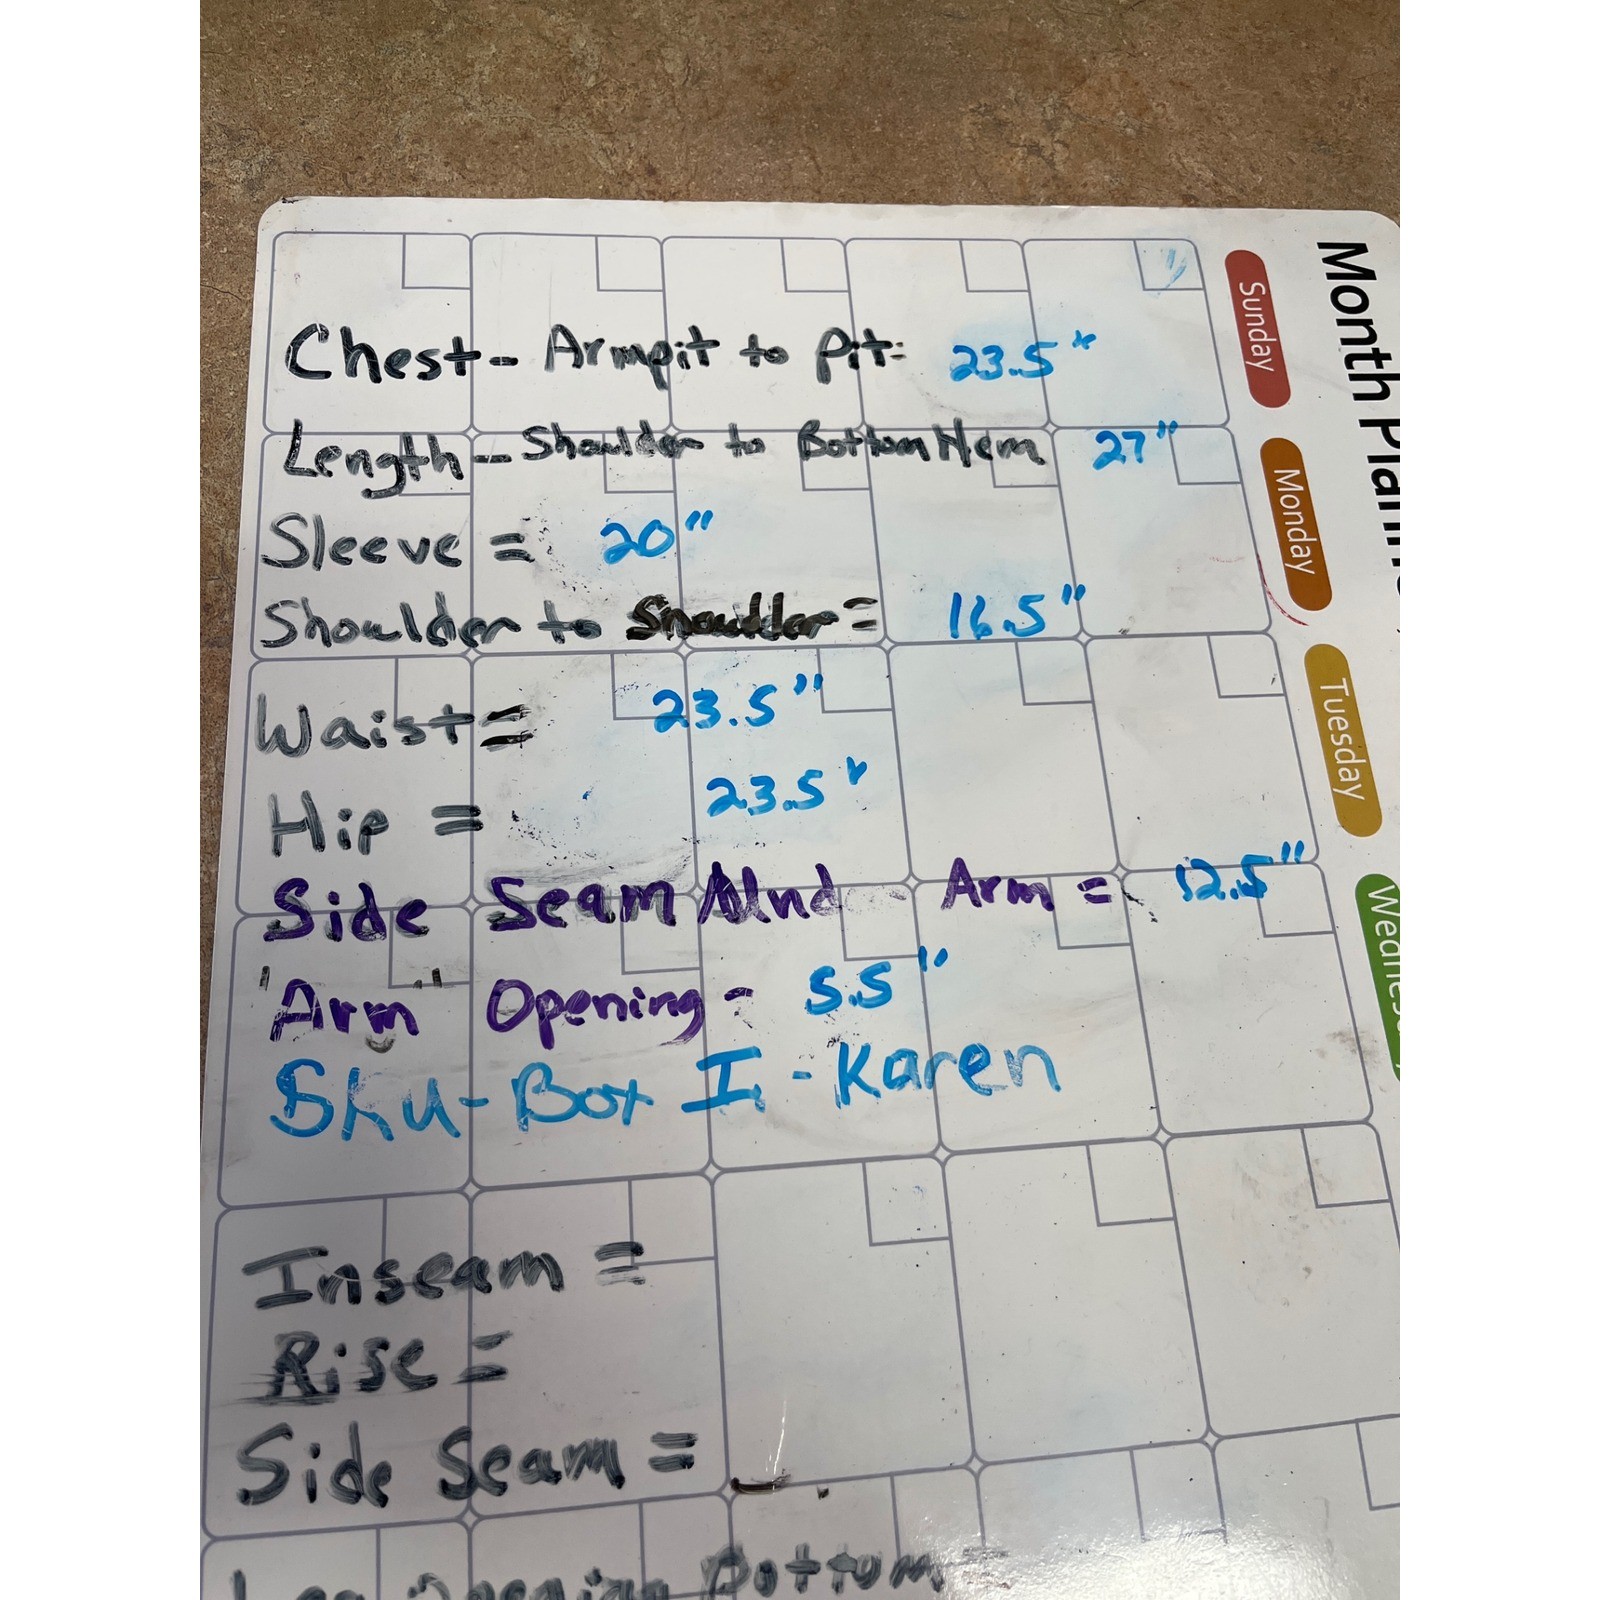 Chest - Armpit to Pit: 23.5"
Length - Shoulder to Bottom Hem 27"
Sleeve = 20"
Shoulder to Shoulder = 16.5"
Waist = 23.5"
Hip = 23.5"
Side Seam - Arm = 12.5"
"Arm" Opening - 5.5"
Sku - Box I - Karen
Inseam =
Rise =
Side Seam =
Leg Opening Bottom =
Month
Sunday
Monday
Tuesday